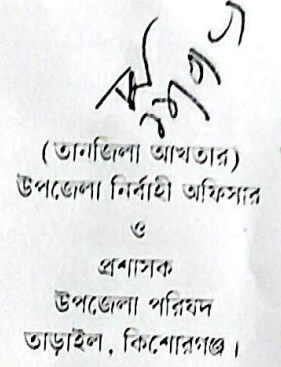 (তানজিলা আখতার)
উপজেলা নির্বাহী অফিসার
ও
প্রশাসক
উপজেলা পরিষদ
তাড়াইল, কিশোরগঞ্জ।